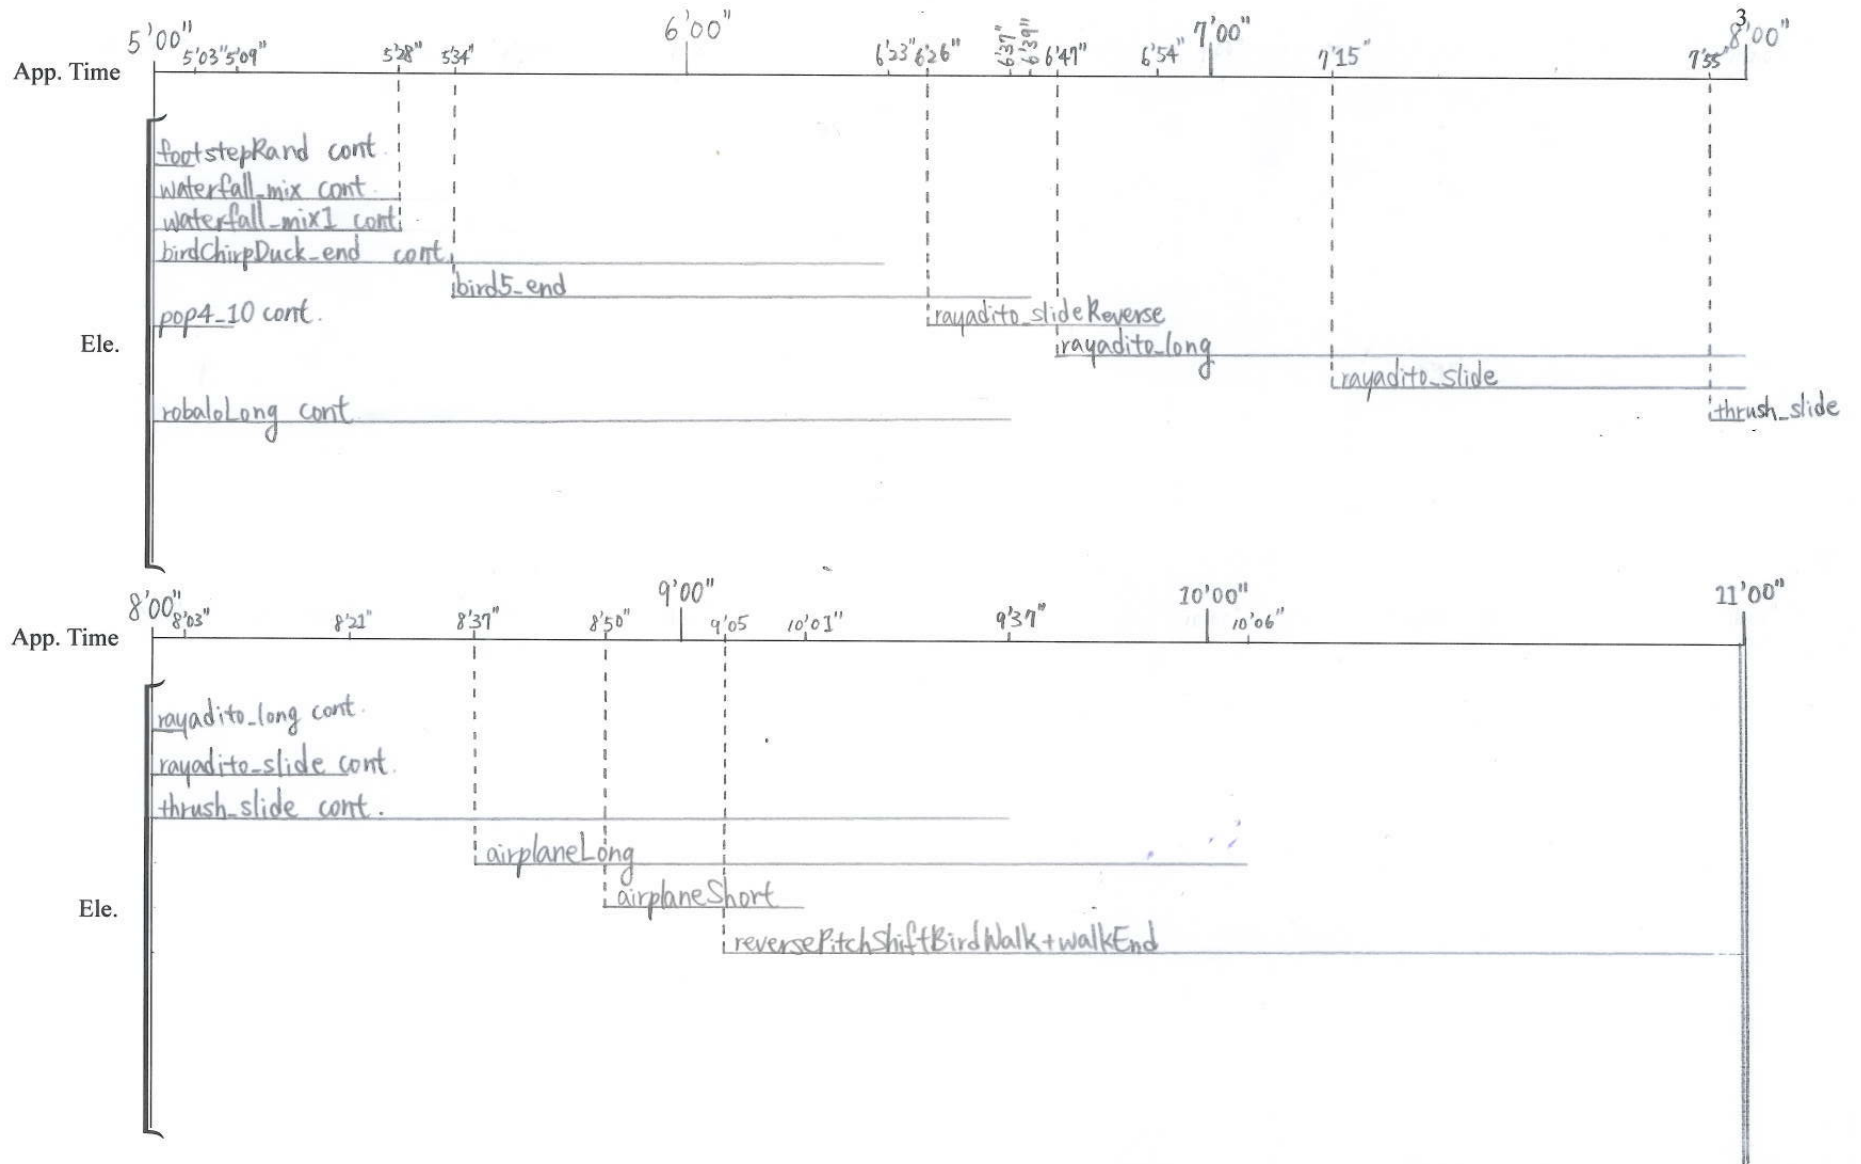 3
5'00" 6'00" 7'00" 8'00"
5'03" 5'09" 5'28" 5'34" 6'23" 6'26" 6'37" 6'39" 6'47" 6'54" 7'15" 7'55"
App. Time
footstepRand cont
waterfall_mix cont.
waterfall_mix1 cont.
birdChirpDuck_end cont.
bird5_end
pop4_10 cont. rayadito_slideReverse
Ele. rayadito_long
rayadito_slide
robaloLong cont thrush_slide
8'00" 9'00" 10'00" 11'00"
8'03" 8'21" 8'37" 8'50" 9'05 10'01" 9'37" 10'06"
App. Time
rayadito_long cont.
rayadito_slide cont.
thrush_slide cont.
airplaneLong
Ele. airplaneShort
reversePitchShiftBirdWalk+walkEnd